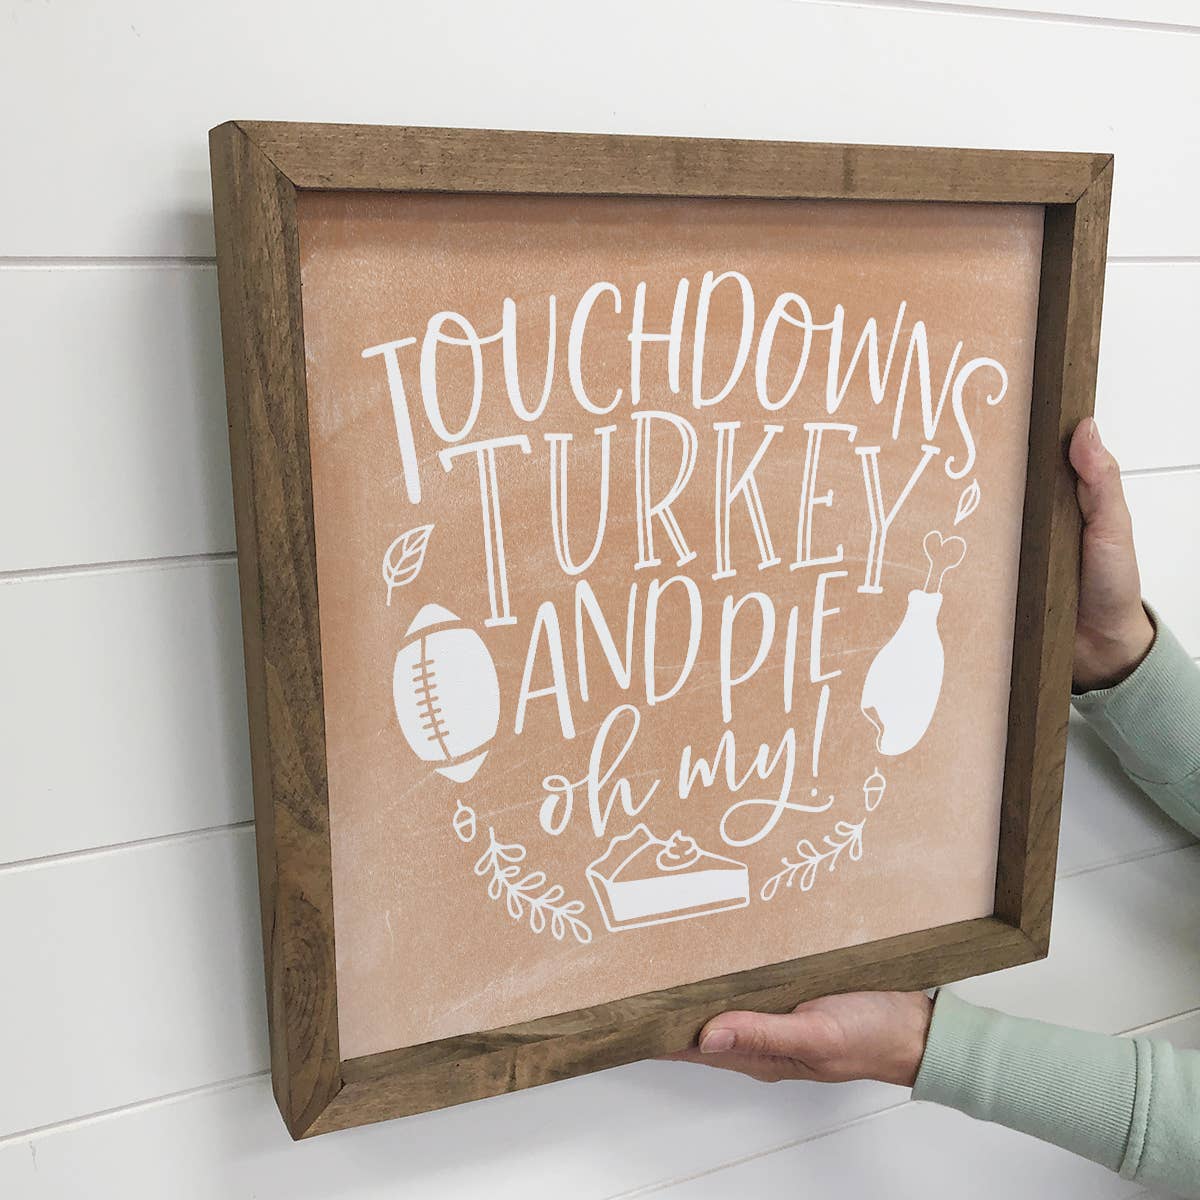 TOUCHDOWNS
TURKEY
AND PIE
oh my!